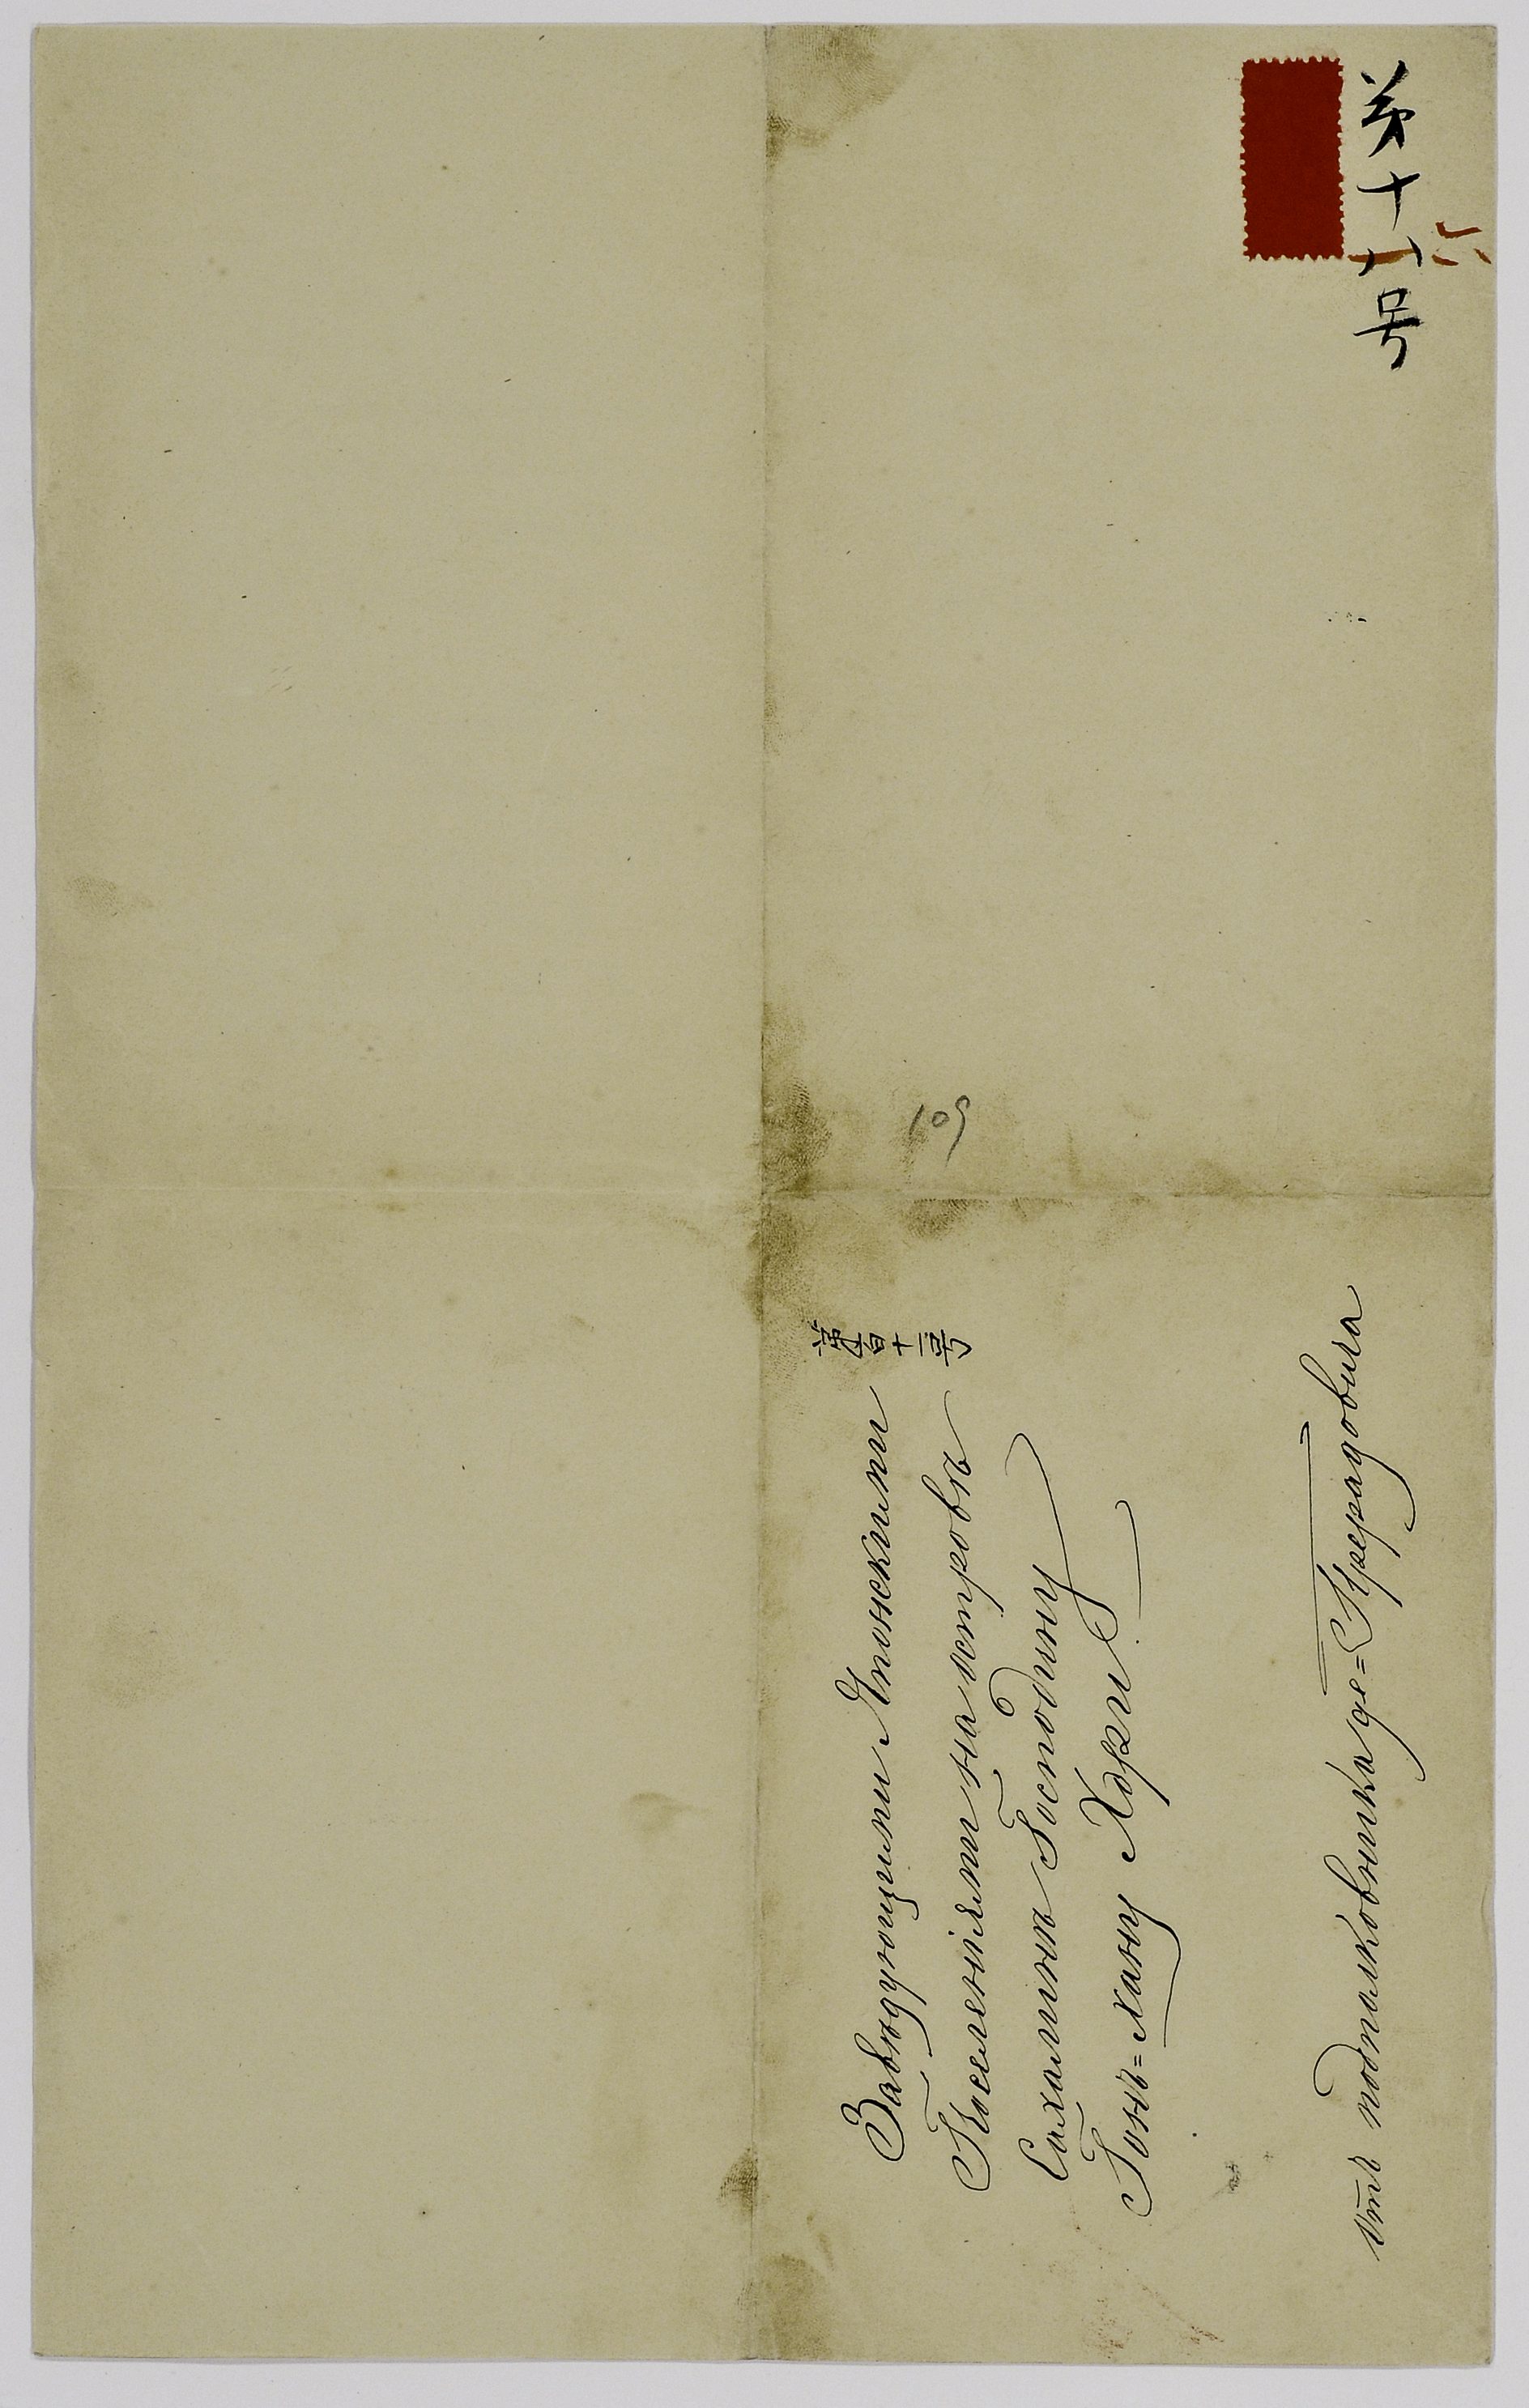 第十八号
六
109
第百十一号
Завѣдующему Японскими
Поселеніями на островѣ
Сахалинѣ Господину
Гонъ=хану Хори.
отъ подполковника де=Прерадовича